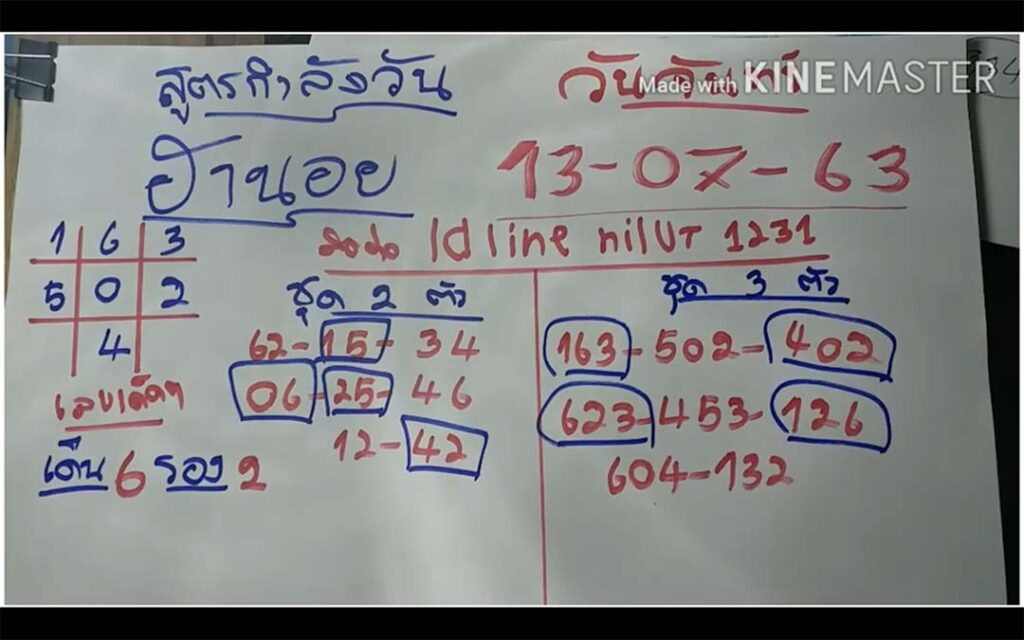 สูตรกำลังวัน วันจันทร์
Made with KINEMASTER
ฮานอย 13-07-63
Id line nilUT 1231
1 6 3
5 0 2
4
ชุด 2 ตัว
62-15-34
06-25-46
12-42
ชุด 3 ตัว
163-502-402
623-453-126
604-132
เลขเด็ดๆ
เด่น 6 รอง 2